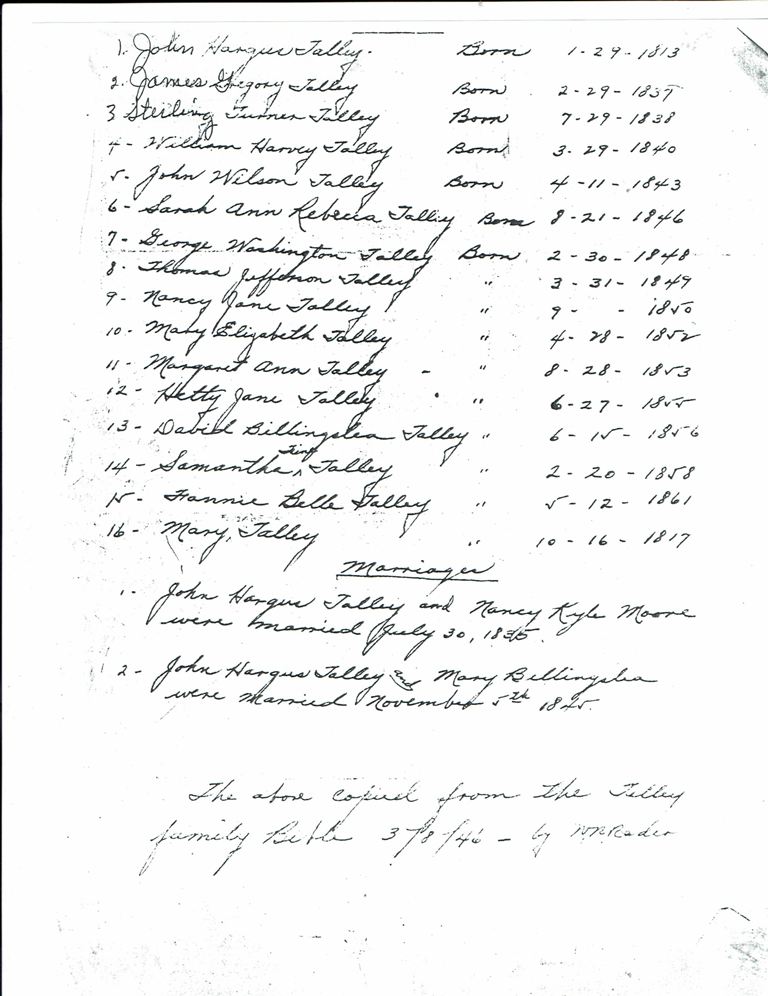 1. John Hargus Talley. Born 1-29-1813
2. James Gregory Talley Born 2-29-1837
3 Sterling Turner Talley Born 7-29-1838
4- William Harvey Talley Born 3-29-1840
5. John Wilson Talley Born 4-11-1843
6- Sarah Ann Rebecca Talley Born 8-21-1846
7- George Washington Talley Born 2-30-1848
8. Thomas Jefferson Talley " 3-31-1849
9- Nancy Jane Talley " 9- - 1850
10- Mary Elizabeth Talley " 4-28-1852
11- Margaret Ann Talley - " 8-28-1853
12- Hetty Jane Talley " 6-27-1855
13- David Billingslea Talley " 6-15-1856
14- Samantha Talley " 2-20-1858
15- Fannie Belle Talley " 5-12-1861
16- Mary, Talley " 10-16-1817
Marriages
1. John Hargus Talley and Nancy Kyle Moore
were married July 30, 1835.
2- John Hargus Talley and Mary Billingslea
were married November 5th 1845.
The above copied from the Talley
family Bible 3/8/46 - by Rader